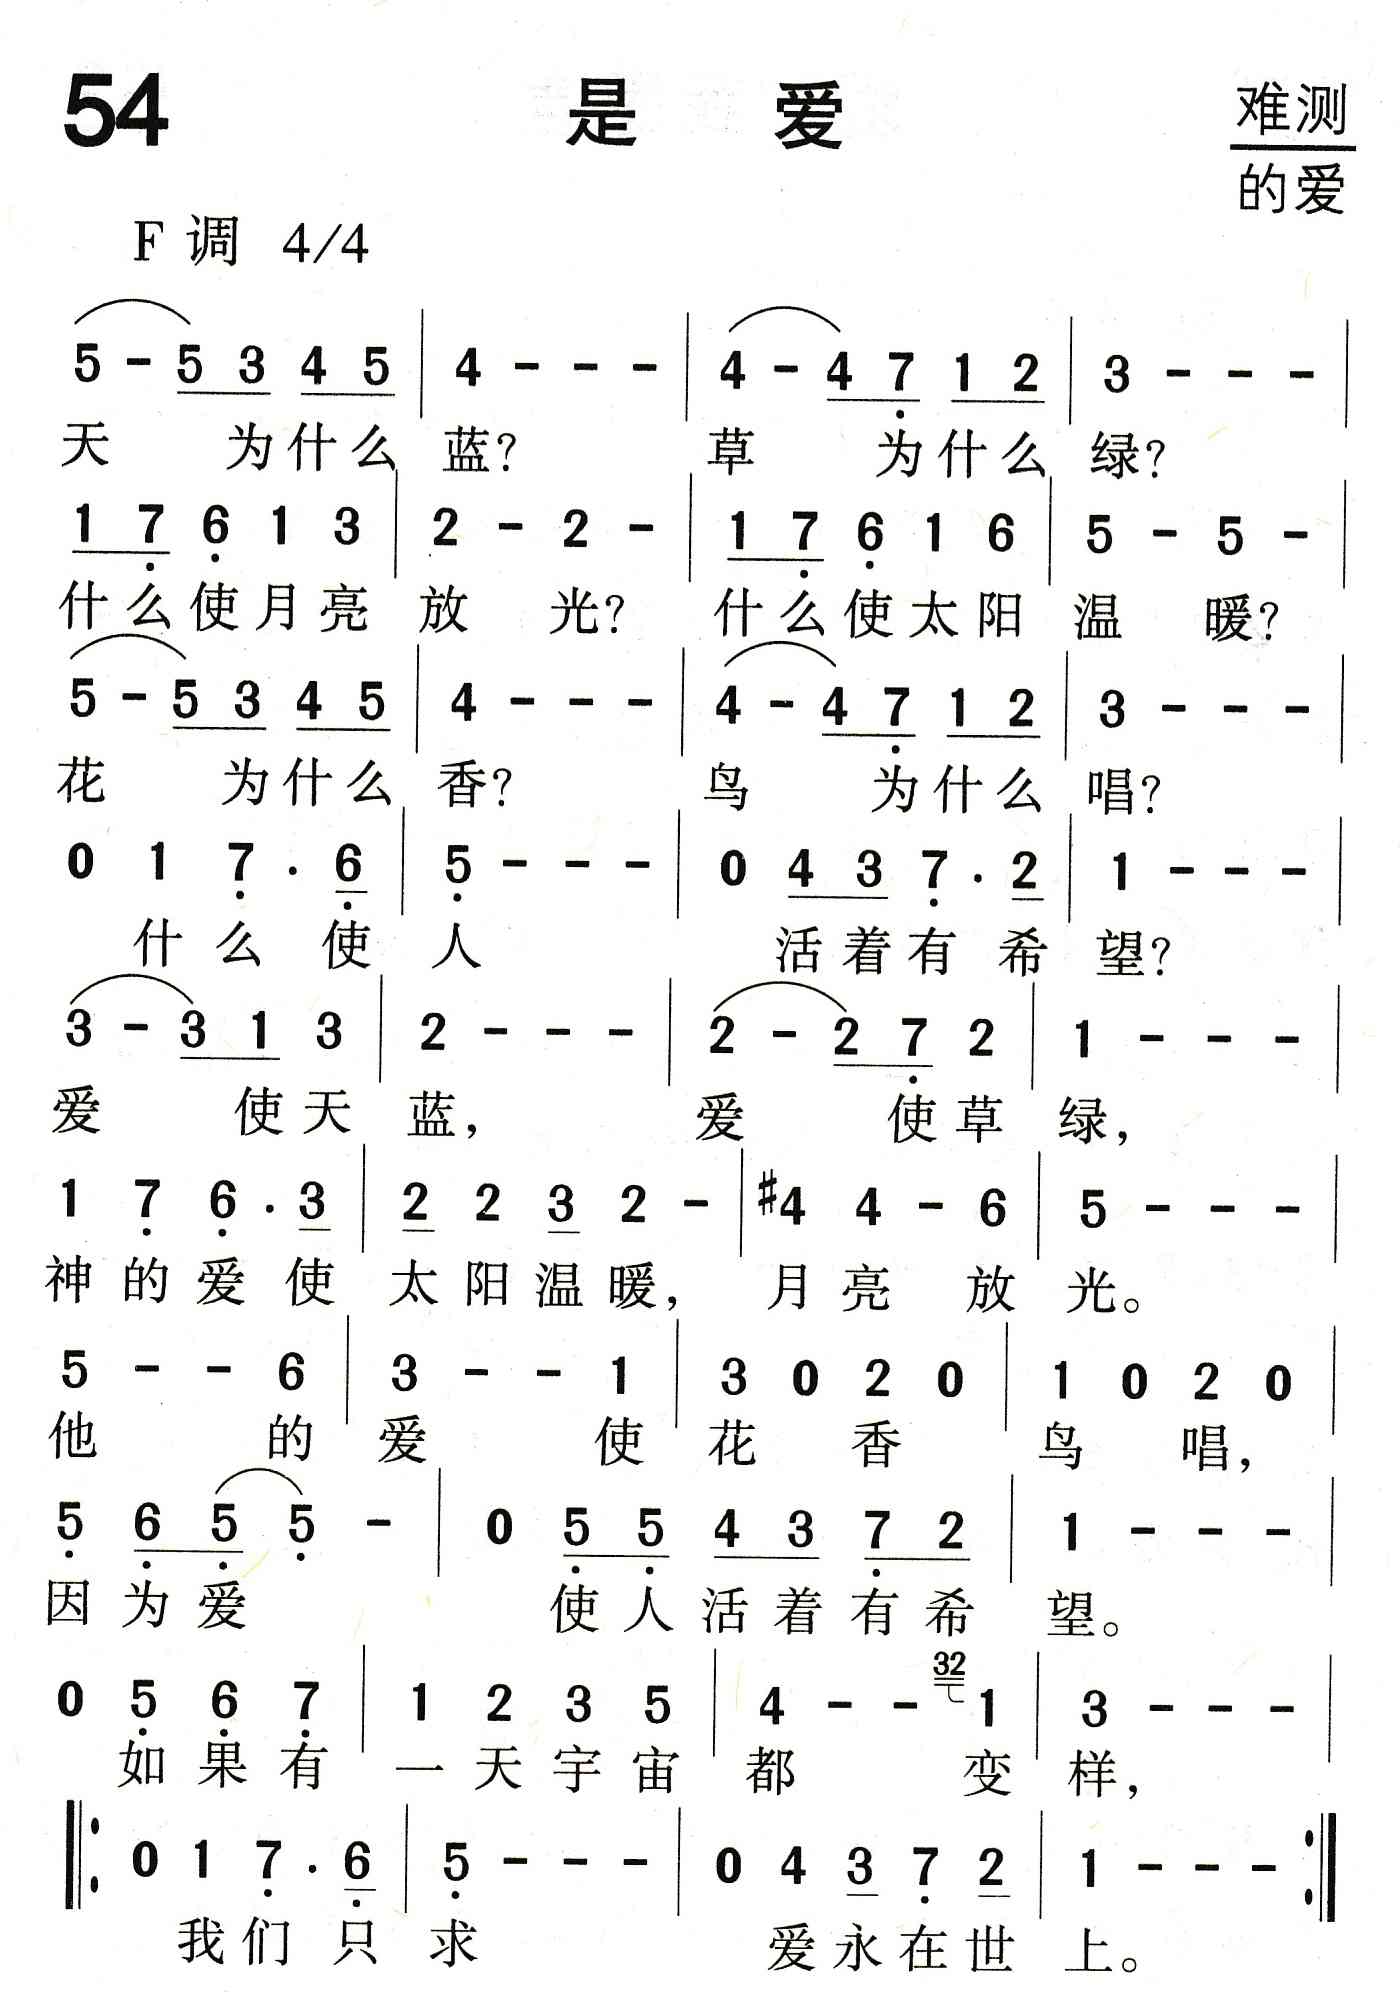 54 是 爱 难测
的爱
F调 4/4
5 - 5 3 4 5 | 4 - - - | 4 - 4 7 1 2 | 3 - - - |
天 为什么 蓝? 草 为什么 绿?
1 7 6 1 3 | 2 - 2 - | 1 7 6 1 6 | 5 - 5 - |
什么使月亮 放 光? 什么使太阳 温 暖?
5 - 5 3 4 5 | 4 - - - | 4 - 4 7 1 2 | 3 - - - |
花 为什么 香? 鸟 为什么 唱?
0 1 7 · 6 | 5 - - - | 0 4 3 7 · 2 | 1 - - - |
什么 使 人 活着有 希 望?
3 - 3 1 3 | 2 - - - | 2 - 2 7 2 | 1 - - - |
爱 使天 蓝, 爱 使草 绿,
1 7 6 · 3 | 2 2 3 2 - | #4 4 - 6 | 5 - - - |
神的爱 使 太阳温暖, 月亮 放 光。
5 - - 6 | 3 - - 1 | 3 0 2 0 | 1 0 2 0 |
他 的 爱 使 花 香 鸟 唱,
5 6 5 5 - | 0 5 5 4 3 7 2 | 1 - - - |
因为爱 使人活着有希 望。
0 5 6 7 | 1 2 3 5 | 4 - - 32 1 | 3 - - - |
如果有 一天宇宙 都 变 样,
‖: 0 1 7 · 6 | 5 - - - | 0 4 3 7 2 | 1 - - - :‖
我们 只 求 爱永在世 上。